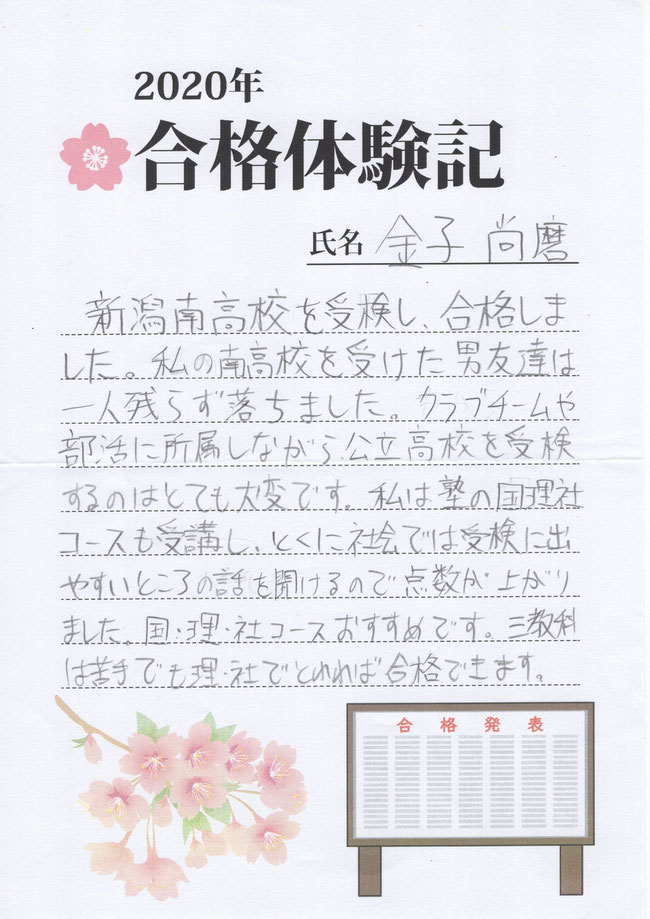 2020年
合格体験記
氏名 金子 尚磨
新潟南高校を受検し、合格しま
した。私の南高校を受けた男友達は
一人残らず落ちました。クラブチームや
部活に所属しながら公立高校を受検
するのはとても大変です。私は塾の国理社
コースも受講し、とくに社会では受検に出
やすいところの話を聞けるので点数が上がり
ました。国・理・社コースおすすめです。三教科
は苦手でも理・社でとれれば合格できます。
合格発表